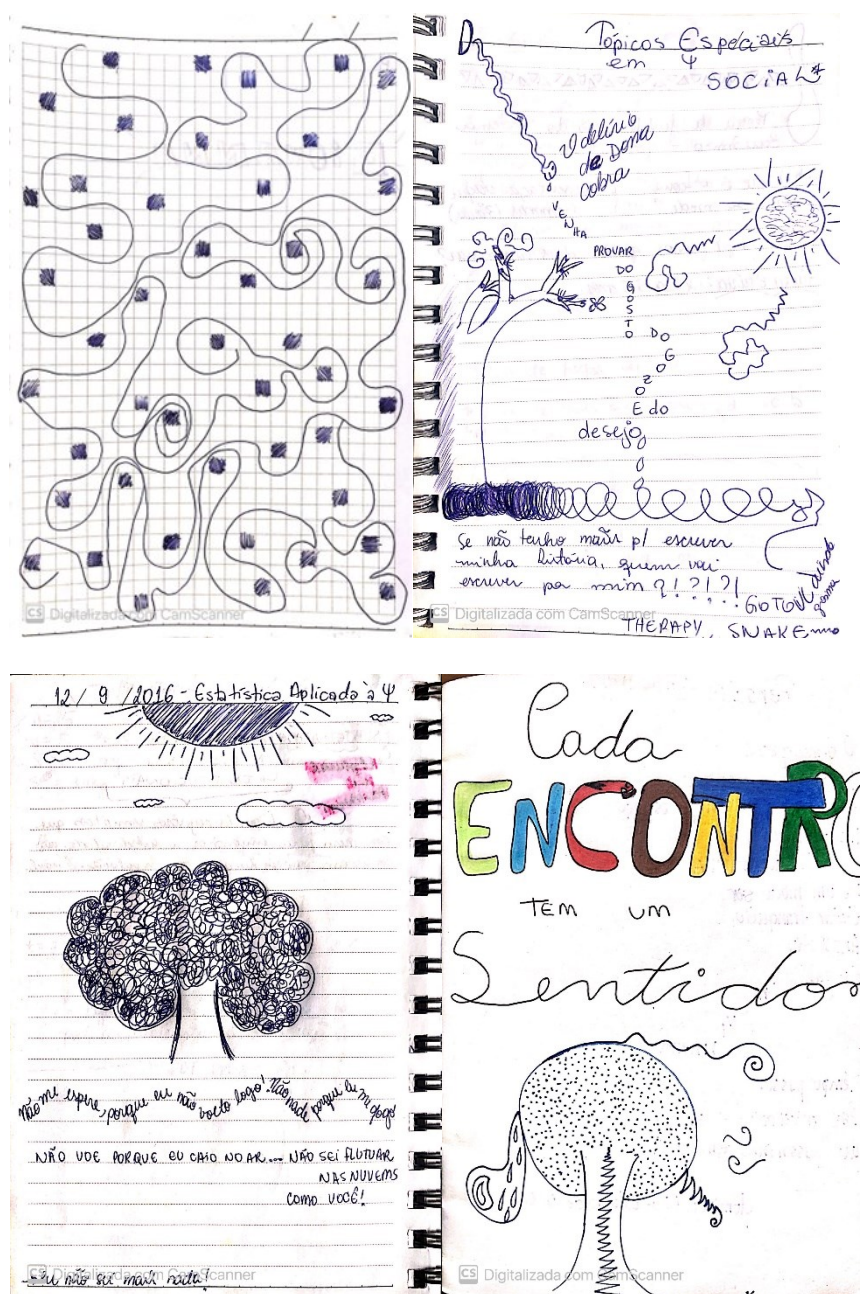 Tópicos Especiais
em Ψ
SOCIAL
O delírio
de Dona
Cobra
VENHA
PROVAR
DO
GOSTO
DO
GOZO
E do
desejo
Se não tenho mãos p/ escrever
minha história, quem vai
escrever por mim ?!?!?!
GO TO
THERAPY, SNAKE
CS Digitalizada com CamScanner
CS Digitalizada com CamScanner
12/9/2016 - Estatística Aplicada à Ψ
Não me espere, porque eu não volto logo! Não nade porque eu me afogo
NÃO VOE PORQUE EU CAIO NO AR... NÃO SEI FLUTUAR
NAS NUVENS
COMO VOCÊ!
Eu não sei mais nada!
CS Digitalizada com CamScanner
Cada
ENCONTRO
TEM UM
Sentido
CS Digitalizada com CamScanner